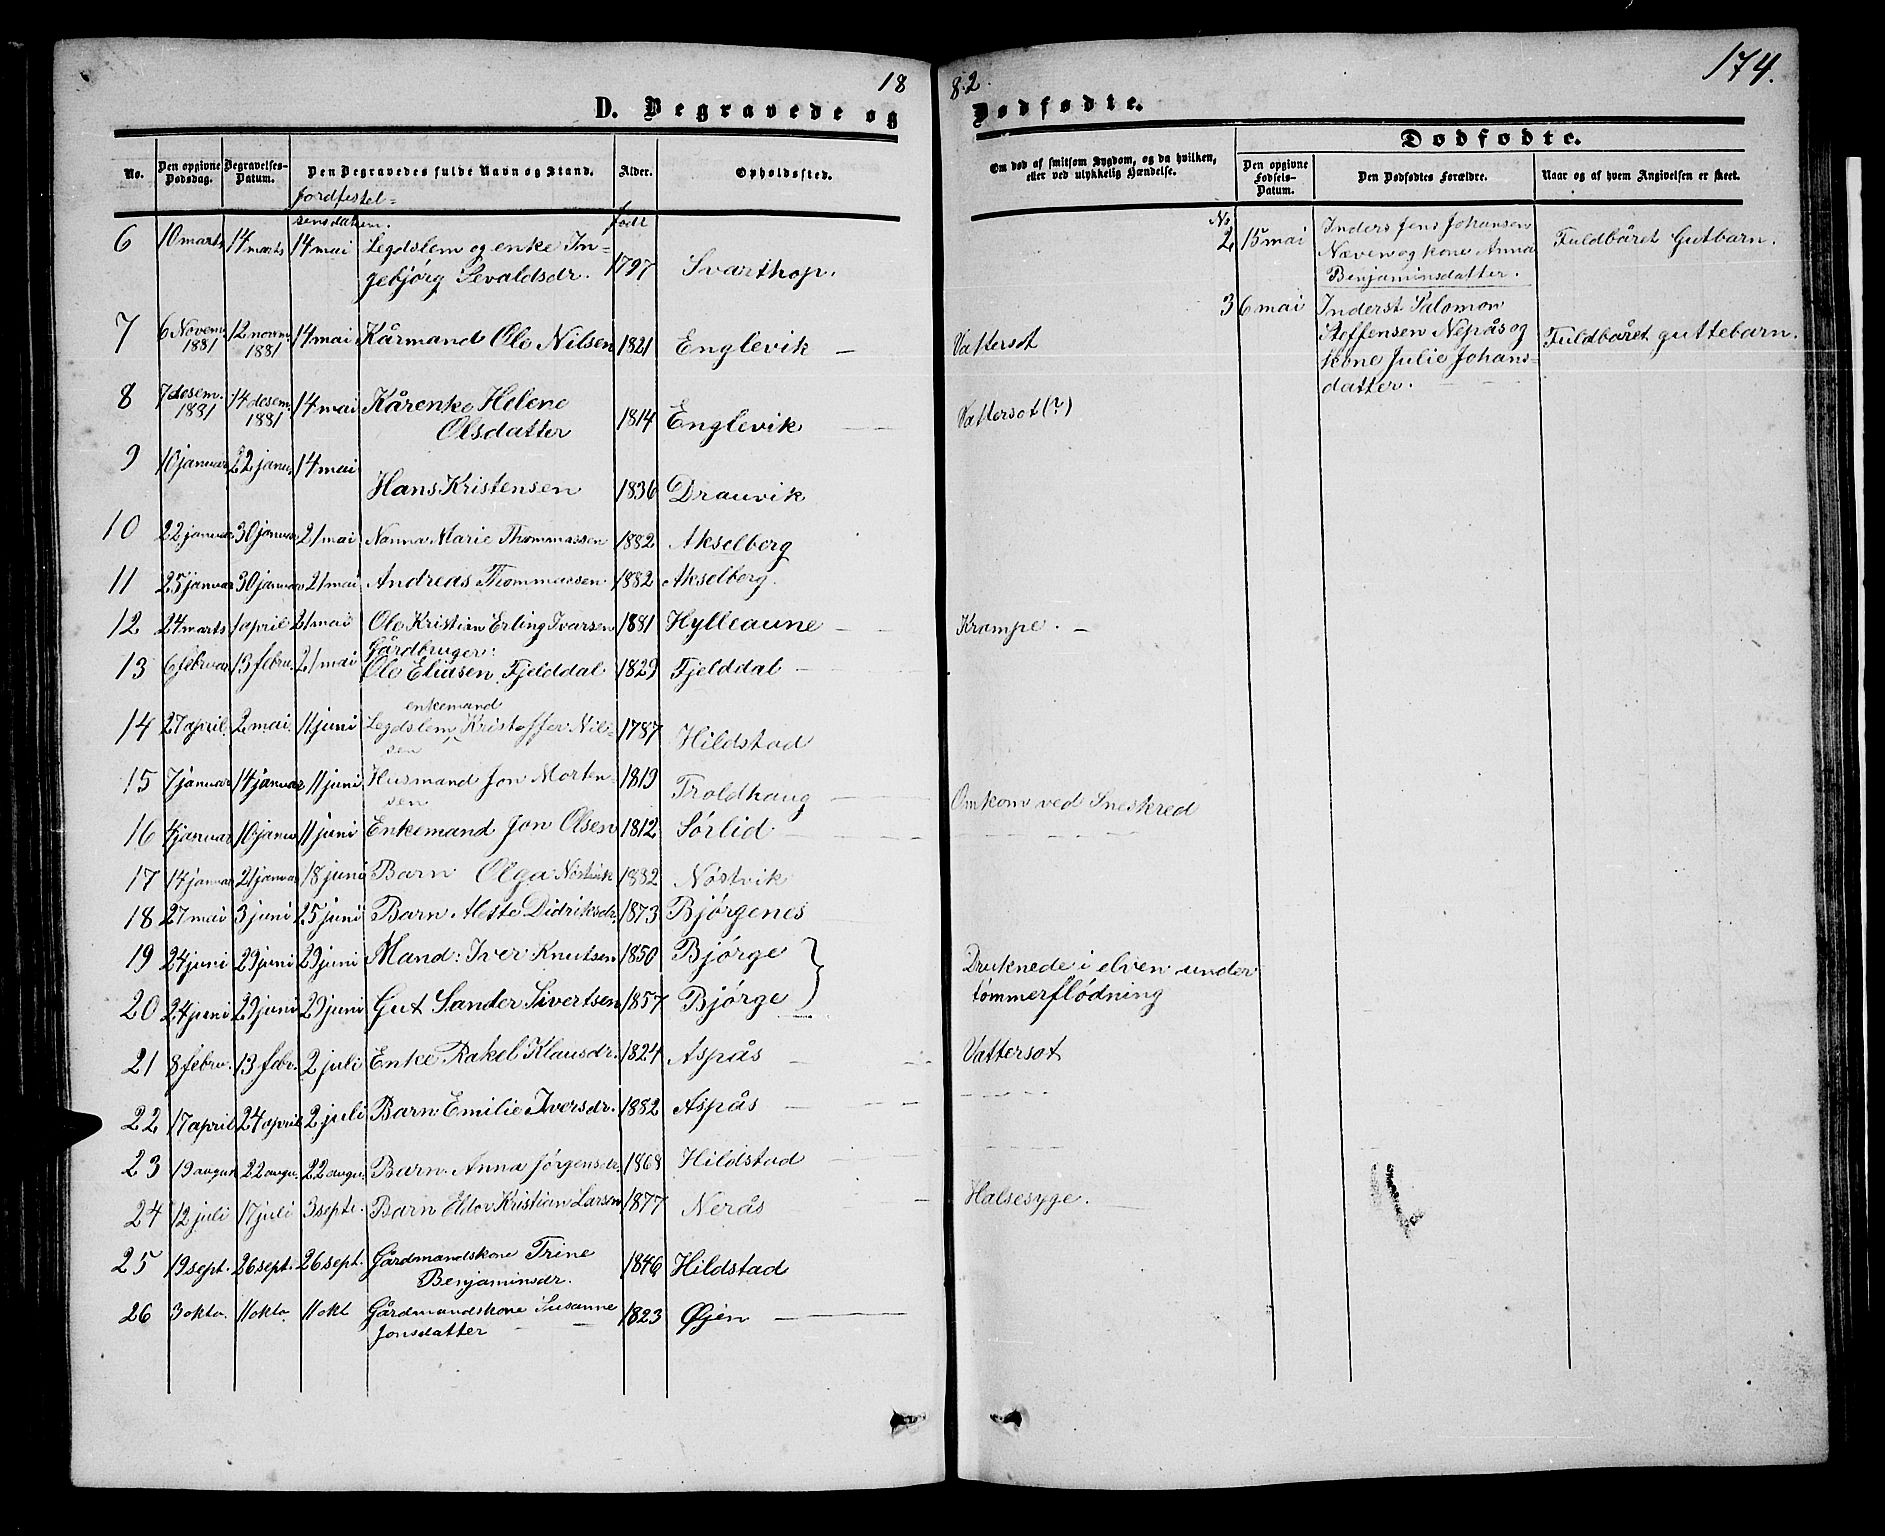 18
D. Begravede og
No.
Den opgivne Dødsdag.
Begravelses-Datum.
Den Begravedes fulde Navn og Stand.
Alder.
Opholdssted.
Jordfestel-
sensdatum.
født
6 10 marts 14 marts 14 mai Legdslem og enke In-
gebjørg Sevaldsdr. 1797 Svarthop.
7 6 Novem. 1881 12 novm. 1881 14 mai Kårmand Ole Nilsen 1821 Englevik
8 7 desem. 1881 14 desem. 1881 14 mai Kårenke Helene
Olsdatter 1814 Englevik
9 10 januar 22 janu. 14 mai
Hans Kristensen 1836 Drauvik
10 22 januar 30 januar 21 mai Nanna Marie Thommassen 1882 Akselberg
11 25 januar 30 januar 21 mai Andreas Thommassen 1882 Akselberg.
12 24 marts 1 april 21 mai Ole Kristian Erling Ivarsen 1881 Hylleaune
Gårdbruger:
13 6 februar 13 febru. 21 mai Ole Eliasen Fjelddal 1829 Fjelddal
enkemand
14 27 april 2 mai 11 juni Legdslem Kristoffer Nil-
sen 1787 Hildstad
15 7 januar 14 januar 11 juni Husmand Jon Morten-
sen 1819 Troldhaug
16 4 januar 10 janu. 11 juni Enkemand Jon Olsen 1812 Sørlid
17 14 januar 21 januar 18 juni Barn Olga Nöstvik 1882 Nöstvik
18 27 mai 3 juni 25 juni Barn Mette Didriksdr. 1873 Bjørgenes
19 24 juni 29 juni 29 juni Mand: Iver Knutsen 1850 Bjørge
20 24 juni 29 juni 29 juni Gut Sander Sivertsen 1857 Bjørge
21 8 febru. 13 febr. 2 juli Enke Rakel Klausdr. 1824 Aspås
22 17 april 24 april 2 juli Barn Emilie Iversdr. 1882 Aspås
23 19 august 22 augu. 22 augu. Barn Anna Jørgensdr. 1868 Hildstad
24 12 juli 17 juli 3 septe. Barn Kristian Larsen 1877 Nerås
25 19 sept. 26 sept. 26 sept. Gårdmandskone Trine
Benjaminsdr. 1846 Hildstad
26 3 okto. 11 okto. 11 okt Gårdmandskone Susanne
Jonsdatter 1823 Øjen
82.
174.
Dødfødte.
Om død af smitsom Sygdom, og da hvilken,
eller ved ulykkelig Hændelse.
Dødfødte.
Den opgivne Fødsels-Datum.
Den Dødfødtes Forældre.
Naar og af hvem Angivelsen er skeet.
No
2 15 mai Inders Jens Johansen
Næven og kone Anna
Benjaminsdatter. Fuldbåret Gutbarn.
3 6 mai Inderst Salomon
Steffensen Nepås og
kone Julie Johans-
datter. Fuldbåret guttebarn.
Vattersot
Vattersot (?)
Krampe.
Omkom ved Sneskred
Druknede i elven under
tømmerflødning
Vattersot
Halsesyge.